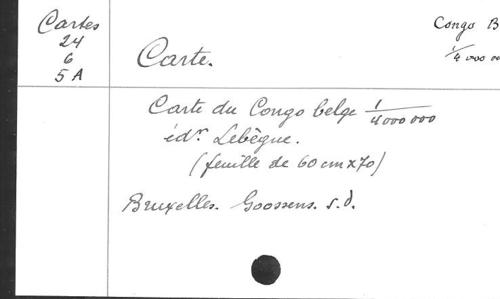 Cartes
24
6
5 A
Carte.
Congo B
1/4 000 00
Carte du Congo belge 1/4000 000
édr. Lebègue.
(feuille de 60 cm x 70)
Bruxelles. Goossens. s.d.